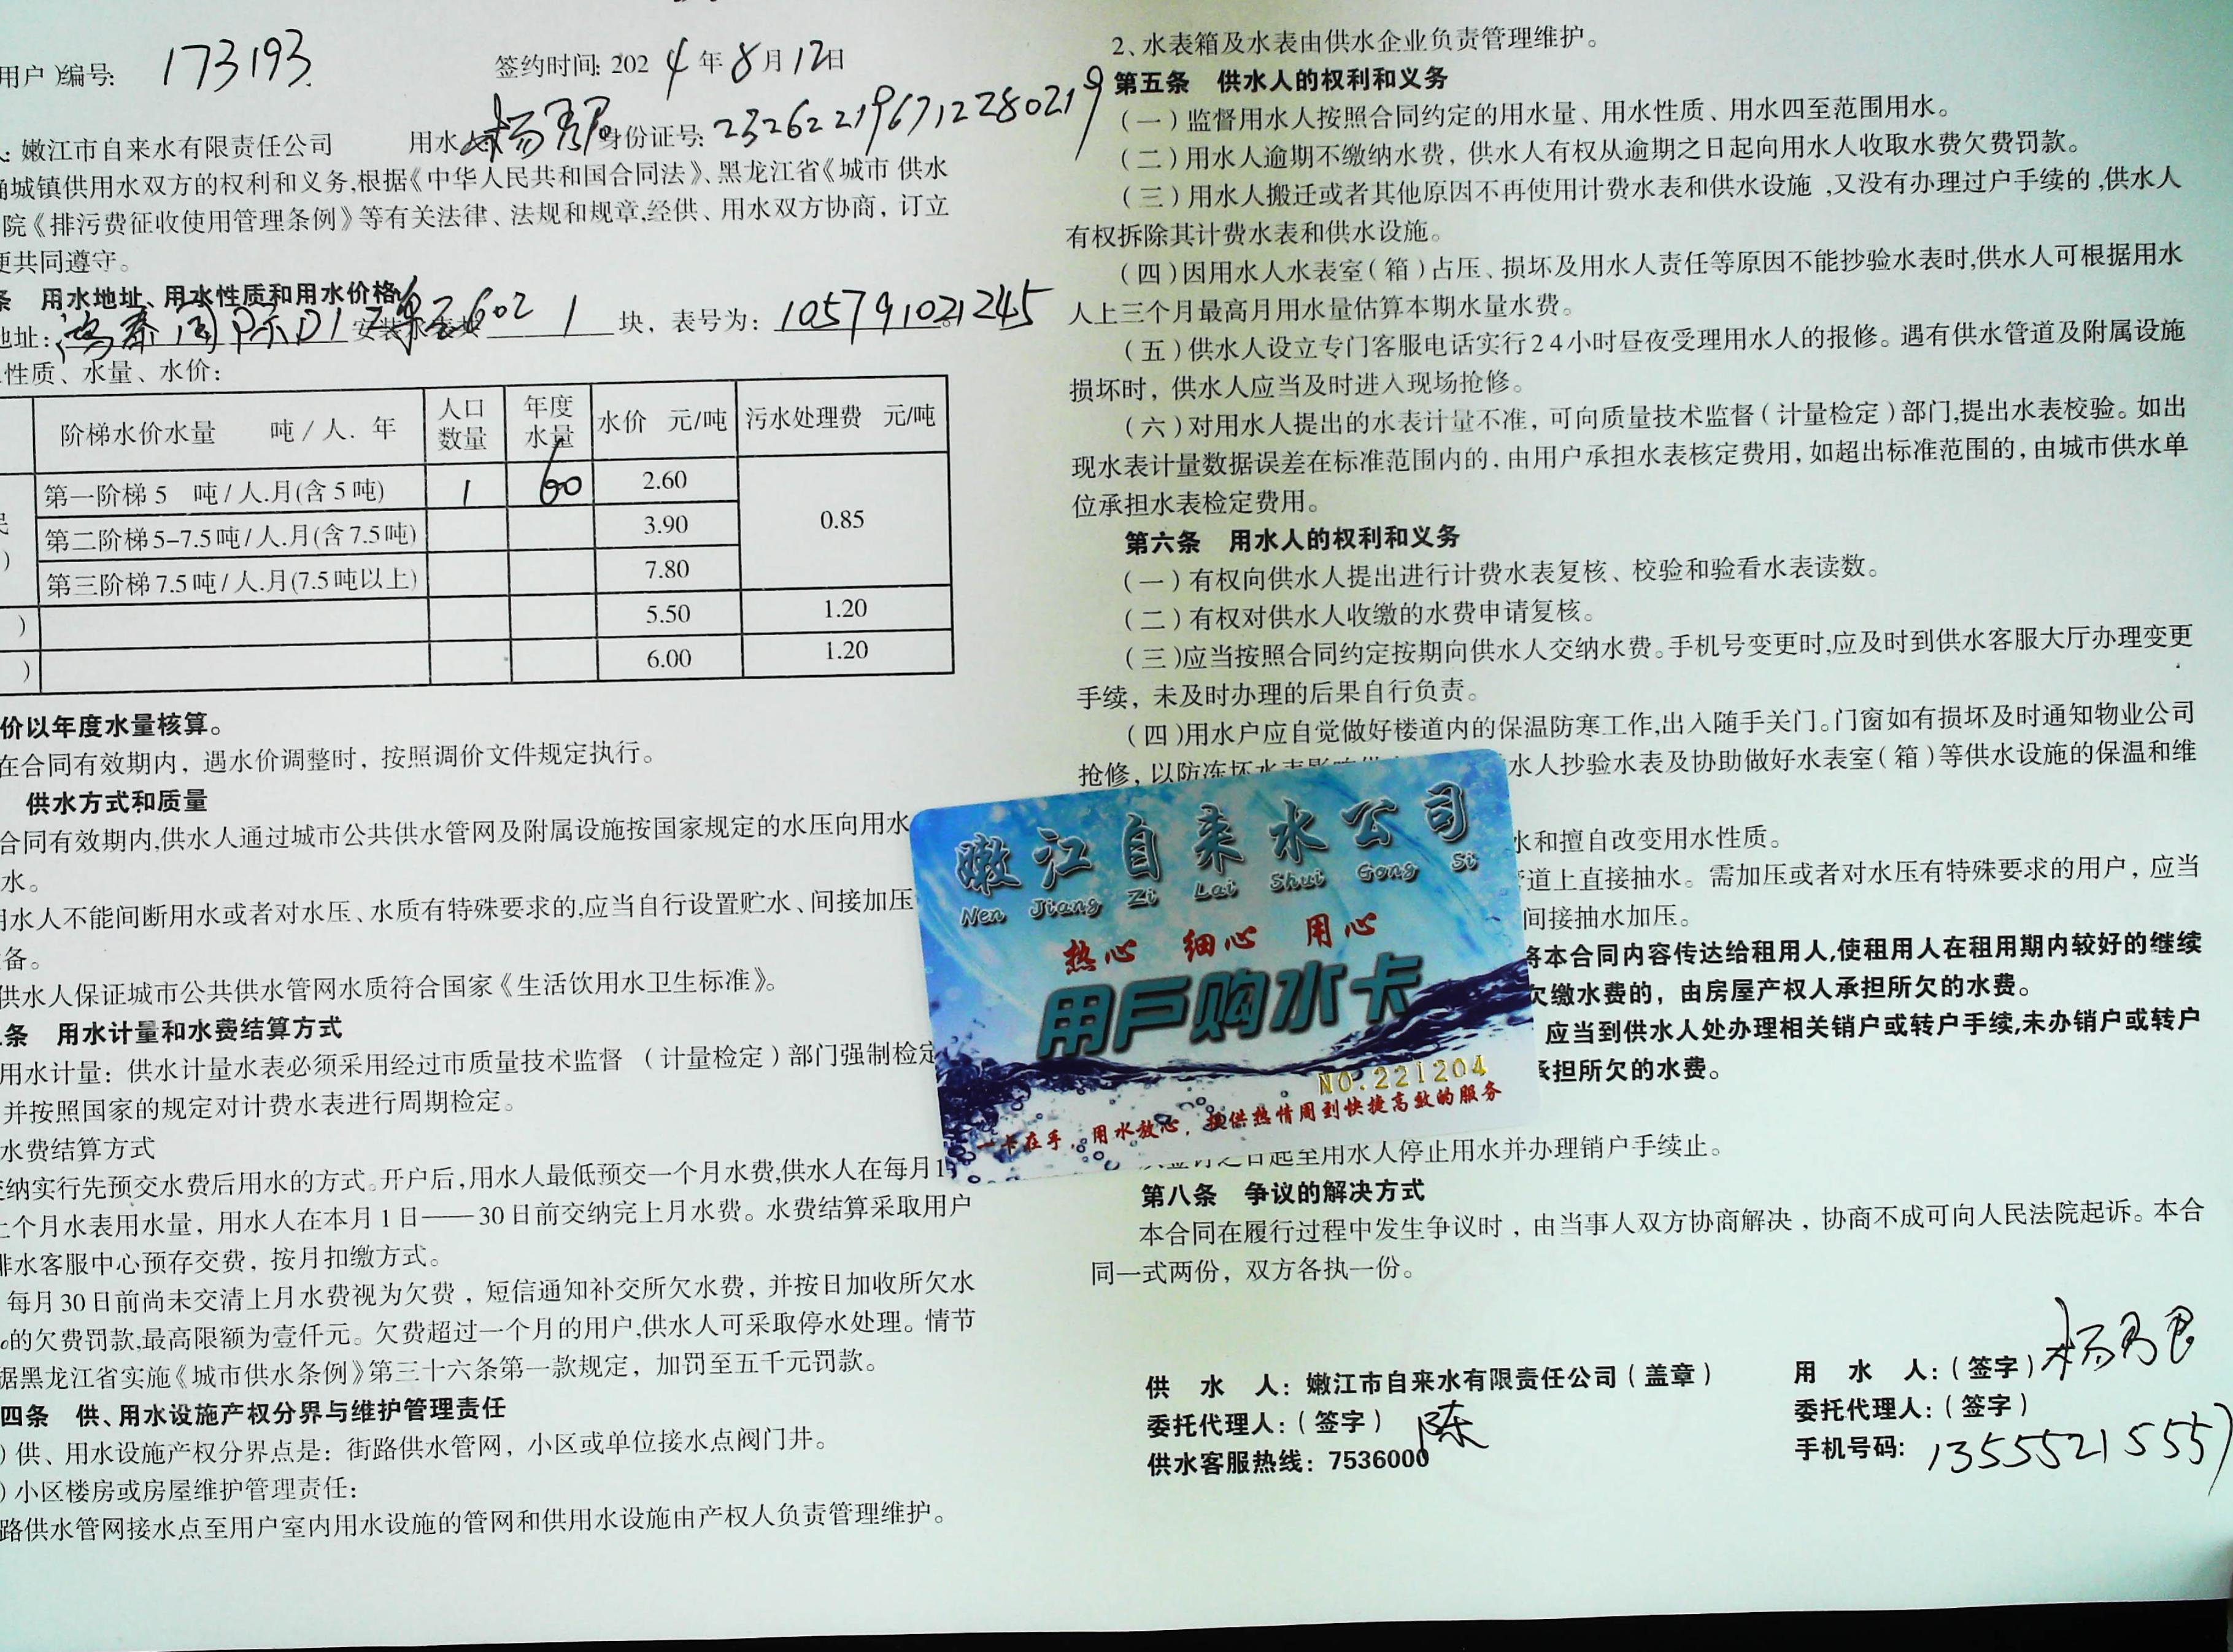 用户)编号: 173193
签约时间: 2024年8月12日
: 嫩江市自来水有限责任公司 用水 杨 身份证号: 232622196712280219
城镇供用水双方的权利和义务,根据《中华人民共和国合同法》、黑龙江省《城市 供水
院《排污费征收使用管理条例》等有关法律、法规和规章,经供、用水双方协商，订立
更共同遵守。
条 用水地址、用水性质和用水价格
地址: 602 1 块，表号为: 105791021245
性质、水量、水价:
阶梯水价水量 吨/人. 年 人口数量 年度水量 水价 元/吨 污水处理费 元/吨
第一阶梯 5 吨/人.月(含5吨) 1 60 2.60 0.85
第二阶梯5-7.5吨/人.月(含7.5吨) 3.90
第三阶梯7.5吨/人.月(7.5吨以上) 7.80
) 5.50 1.20
) 6.00 1.20
价以年度水量核算。
在合同有效期内，遇水价调整时，按照调价文件规定执行。
供水方式和质量
合同有效期内,供水人通过城市公共供水管网及附属设施按国家规定的水压向用水
水。
用水人不能间断用水或者对水压、水质有特殊要求的,应当自行设置贮水、间接加压
备。
供水人保证城市公共供水管网水质符合国家《生活饮用水卫生标准》。
条 用水计量和水费结算方式
用水计量：供水计量水表必须采用经过市质量技术监督 （计量检定）部门强制检定
并按照国家的规定对计费水表进行周期检定。
水费结算方式
交纳实行先预交水费后用水的方式。开户后,用水人最低预交一个月水费,供水人在每月1
上个月水表用水量，用水人在本月1日——30日前交纳完上月水费。水费结算采取用户
排水客服中心预存交费，按月扣缴方式。
每月30日前尚未交清上月水费视为欠费，短信通知补交所欠水费，并按日加收所欠水
的欠费罚款,最高限额为壹仟元。欠费超过一个月的用户,供水人可采取停水处理。情节
据黑龙江省实施《城市供水条例》第三十六条第一款规定，加罚至五千元罚款。
四条 供、用水设施产权分界与维护管理责任
)供、用水设施产权分界点是：街路供水管网，小区或单位接水点阀门井。
)小区楼房或房屋维护管理责任：
路供水管网接水点至用户室内用水设施的管网和供用水设施由产权人负责管理维护。
2、水表箱及水表由供水企业负责管理维护。
第五条 供水人的权利和义务
（一)监督用水人按照合同约定的用水量、用水性质、用水四至范围用水。
（二)用水人逾期不缴纳水费，供水人有权从逾期之日起向用水人收取水费欠费罚款。
（三)用水人搬迁或者其他原因不再使用计费水表和供水设施,又没有办理过户手续的,供水人
有权拆除其计费水表和供水设施。
（四)因用水人水表室(箱)占压、损坏及用水人责任等原因不能抄验水表时,供水人可根据用水
人上三个月最高月用水量估算本期水量水费。
（五)供水人设立专门客服电话实行24小时昼夜受理用水人的报修。遇有供水管道及附属设施
损坏时，供水人应当及时进入现场抢修。
（六)对用水人提出的水表计量不准，可向质量技术监督(计量检定)部门,提出水表校验。如出
现水表计量数据误差在标准范围内的,由用户承担水表核定费用,如超出标准范围的,由城市供水单
位承担水表检定费用。
第六条 用水人的权利和义务
（一)有权向供水人提出进行计费水表复核、校验和验看水表读数。
（二)有权对供水人收缴的水费申请复核。
（三)应当按照合同约定按期向供水人交纳水费。手机号变更时,应及时到供水客服大厅办理变更
手续，未及时办理的后果自行负责。
（四)用水户应自觉做好楼道内的保温防寒工作,出入随手关门。门窗如有损坏及时通知物业公司
抢修，以防冻坏水表影响供 水人抄验水表及协助做好水表室(箱)等供水设施的保温和维
水和擅自改变用水性质。
道上直接抽水。需加压或者对水压有特殊要求的用户，应当
间接抽水加压。
将本合同内容传达给租用人,使租用人在租用期内较好的继续
欠缴水费的，由房屋产权人承担所欠的水费。
应当到供水人处办理相关销户或转户手续,未办销户或转户
承担所欠的水费。
嫩江自来水公司
Nen Jiang Zi Lai Shui Gong Si
热心 细心 用心
用户购水卡
NO.221204
一卡在手，用水放心，提供热情周到快捷高效的服务
之日起至用水人停止用水并办理销户手续止。
第八条 争议的解决方式
本合同在履行过程中发生争议时，由当事人双方协商解决，协商不成可向人民法院起诉。本合
同一式两份，双方各执一份。
供 水 人：嫩江市自来水有限责任公司(盖章)
委托代理人：(签字) 陈
供水客服热线：7536000
用 水 人：(签字) 杨
委托代理人：(签字)
手机号码: 13555215557